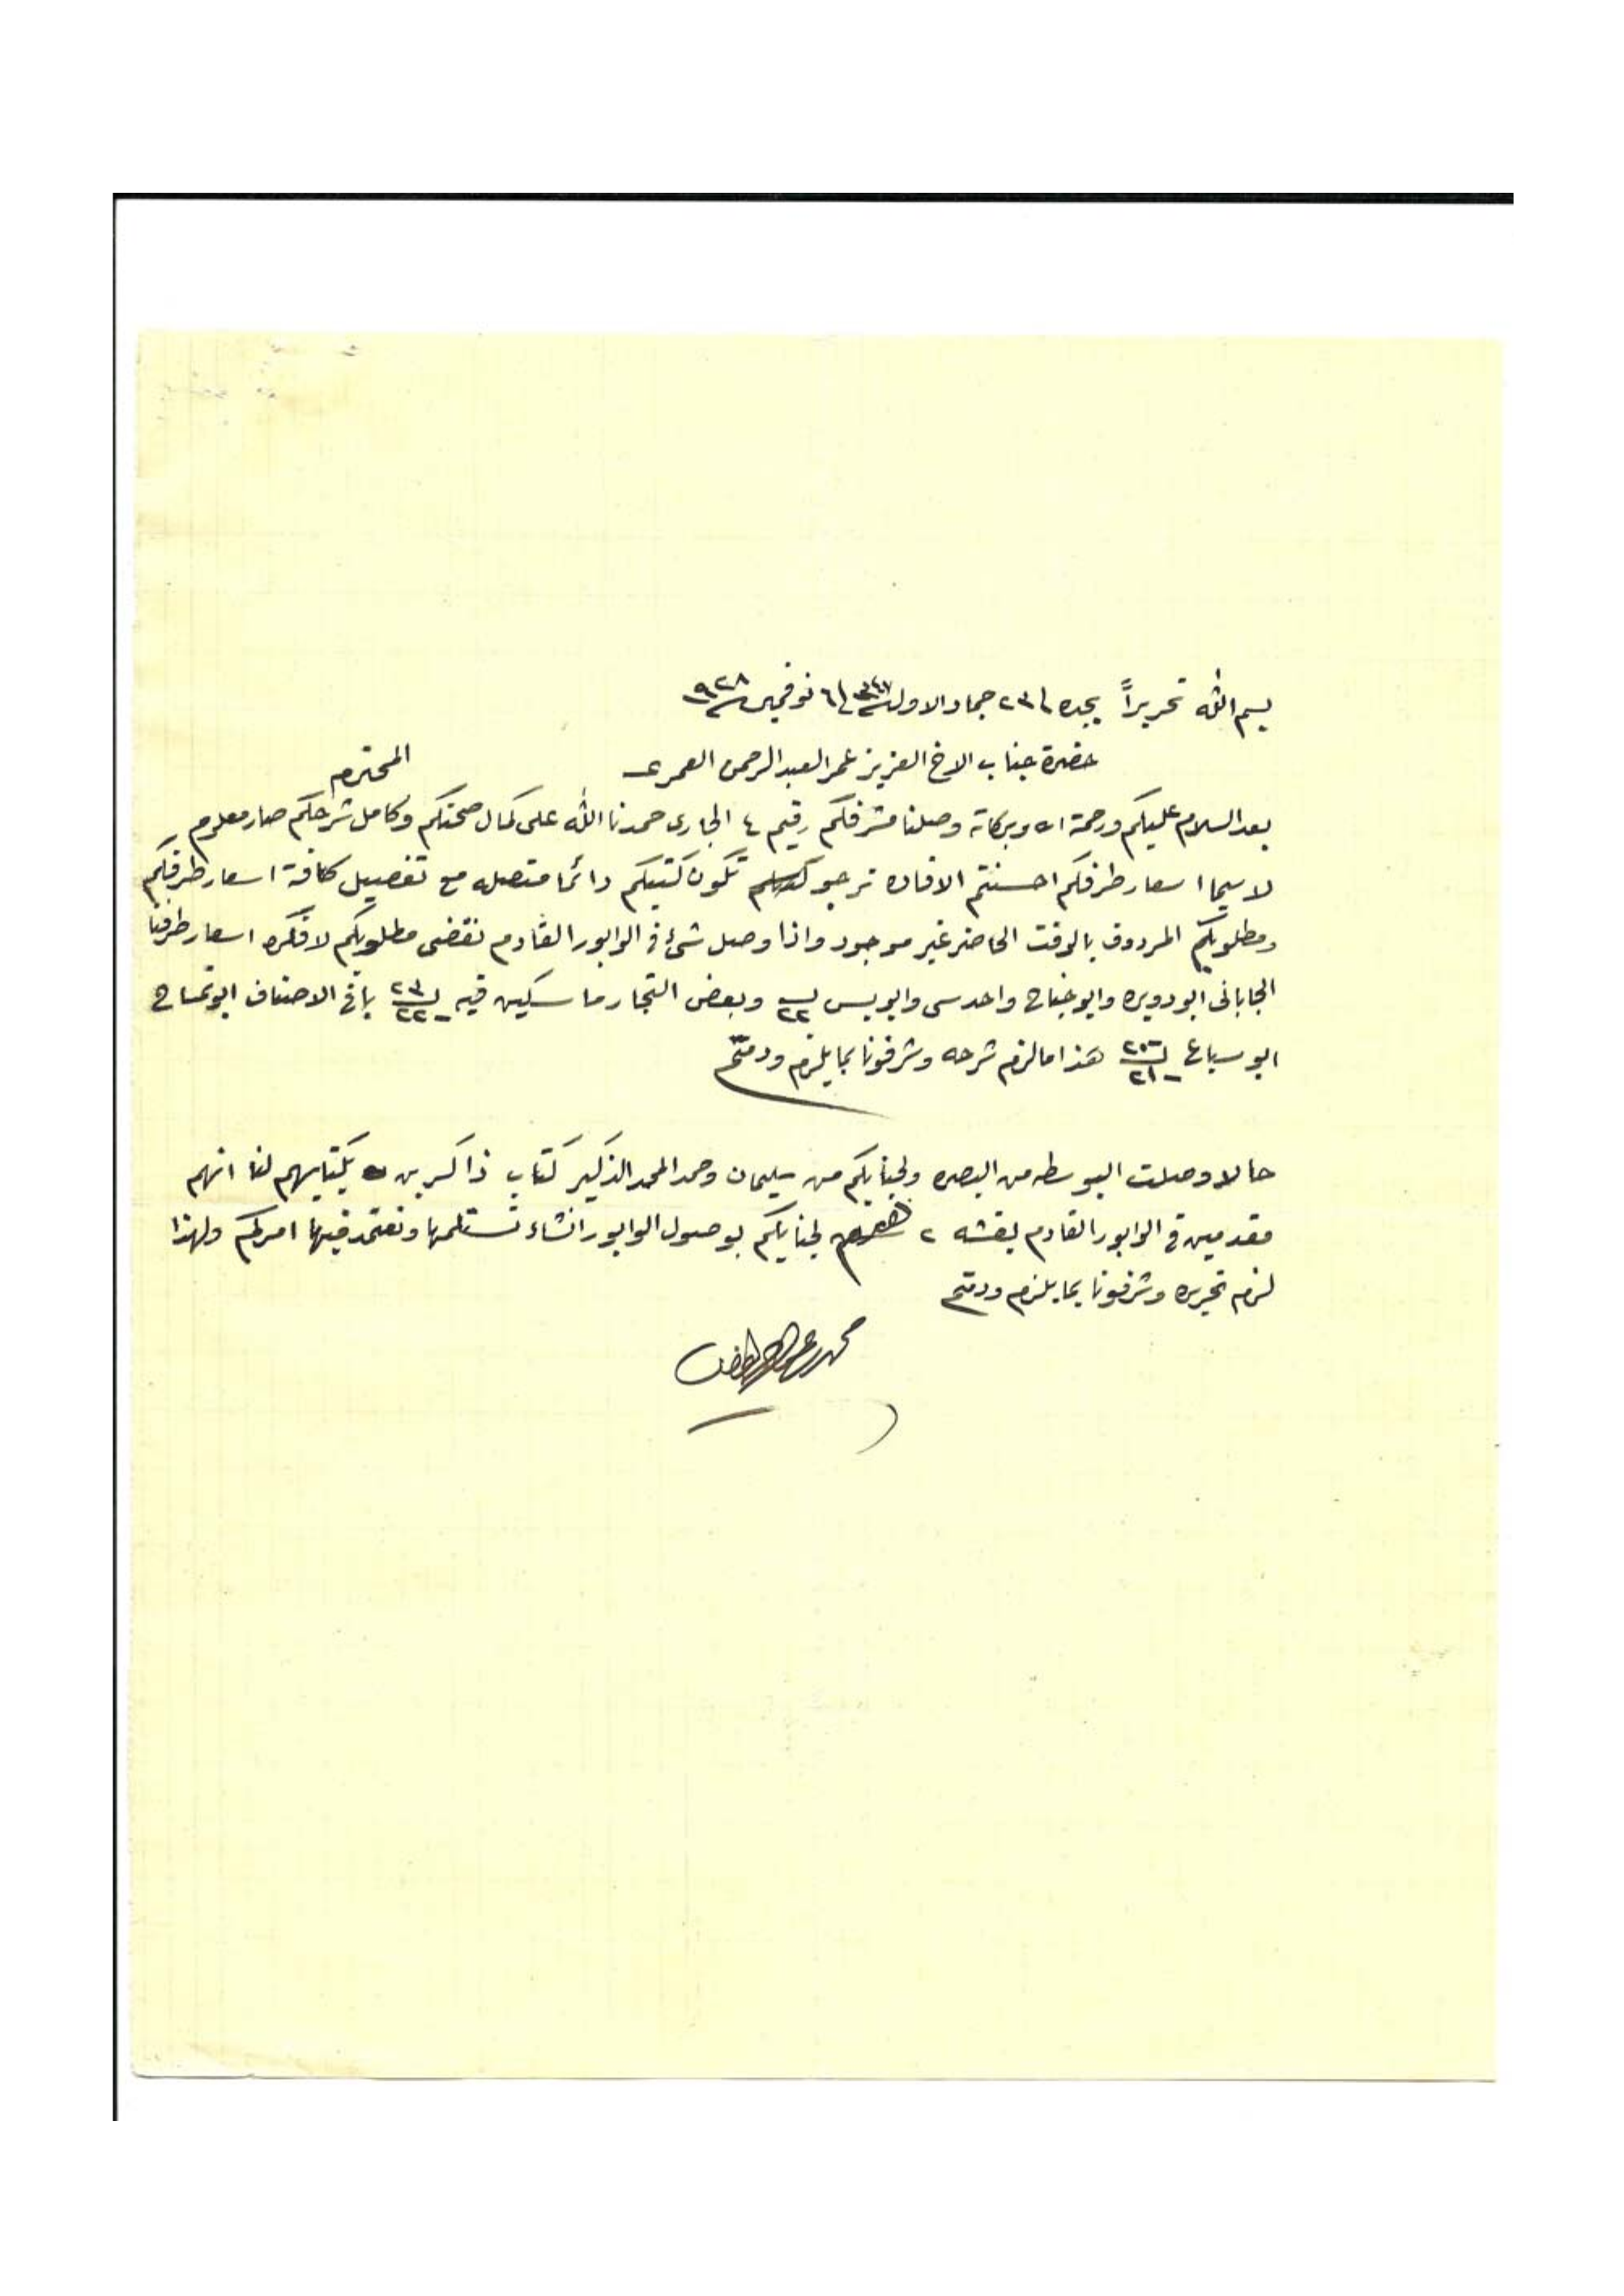 بسم الله تحريراً بجده في ٢٣ جماد الاول سنة ٣٤٧ في ٦ نوفمبر سنة ٩٢٨
حضرة جناب الاخ العزيز عمر العبدالرحمن العمري المحترم
بعد السلام عليكم ورحمة الله وبركاته وصلنا مشرفكم رقيم ٤ الجاري حمدنا الله على كمال صحتكم وكامل شرحكم صار معلوم
لاسيما اسعار طرفكم احسنتم الافاده نرجو تكون كتبكم دائما متصله مع تفصيل كافة اسعار طرفكم
ومطلوبكم المردوف بالوقت الحاضر غير موجود واذا وصل شئ في الوابور القادم نقضى مطلوبكم لا فكره اسعار طرفنا
الجاباني ابو دويره وابو جناح واحدسى وابو بس ٢٢ وبعض التجار ماسكين فيه ٢٣ ٢٢ باقي الاصناف ابو تمساح
ابو سباع ٢٠ ٢١ هذا مالزم شرحه وشرفونا بما يلزم ودمتم
حالا وصلت البوسطه من البصره ولجنابكم من سليمان وحمد المحمد الذكير كتاب ذاكرين بكتابهم لنا انهم
مقدمين في الوابور القادم بقشه ٢ لجنابكم بوصول الوابور انشاء نستلمها ونعتمد فيها امركم ولهذا
لزم تحريره وشرفونا بما يلزم ودمتم